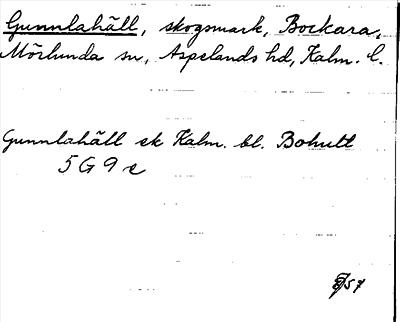 Gunnlahäll, skogsmark, Bockara,
Mörlunda sn, Aspelands hd, Kalm. l.
Gunnlahäll ek Kalm. bl. Bohult
5 G 9 e
57